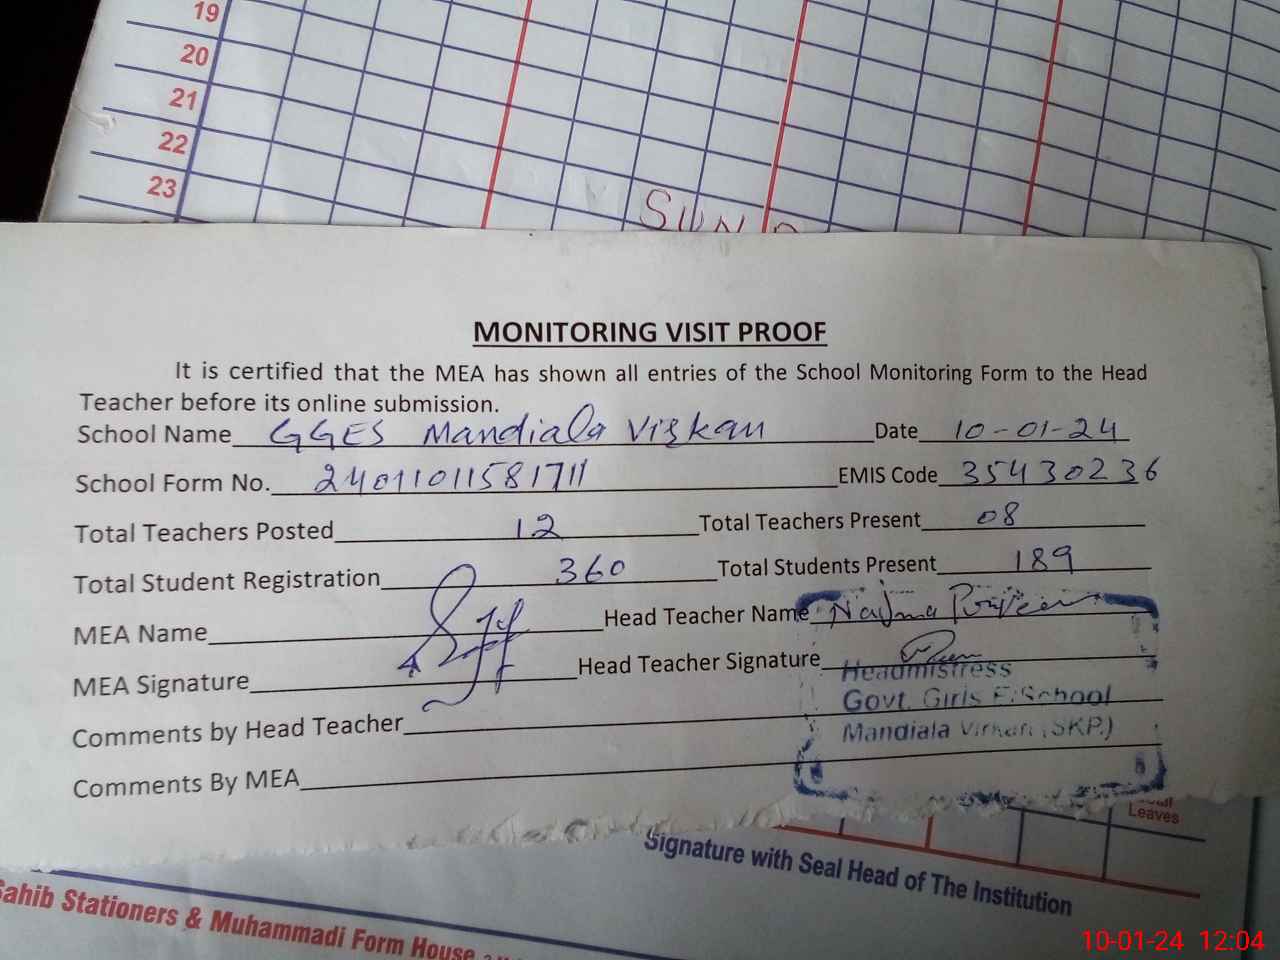 19
20
21
22
23
SUN
MONITORING VISIT PROOF
It is certified that the MEA has shown all entries of the School Monitoring Form to the Head
Teacher before its online submission.
School Name GGES Mandiala Virkan Date 10-01-24
School Form No. 24011011581711 EMIS Code 35430236
Total Teachers Posted 12 Total Teachers Present 08
Total Student Registration 360 Total Students Present 189
MEA Name Head Teacher Name Najma Parveen
MEA Signature Head Teacher Signature
Headmistress
Comments by Head Teacher Govt. Girls E.School
Mandiala Virkan (SKP.)
Comments By MEA
Leaves
Signature with Seal Head of The Institution
Sahib Stationers & Muhammadi Form House
10-01-24 12:04